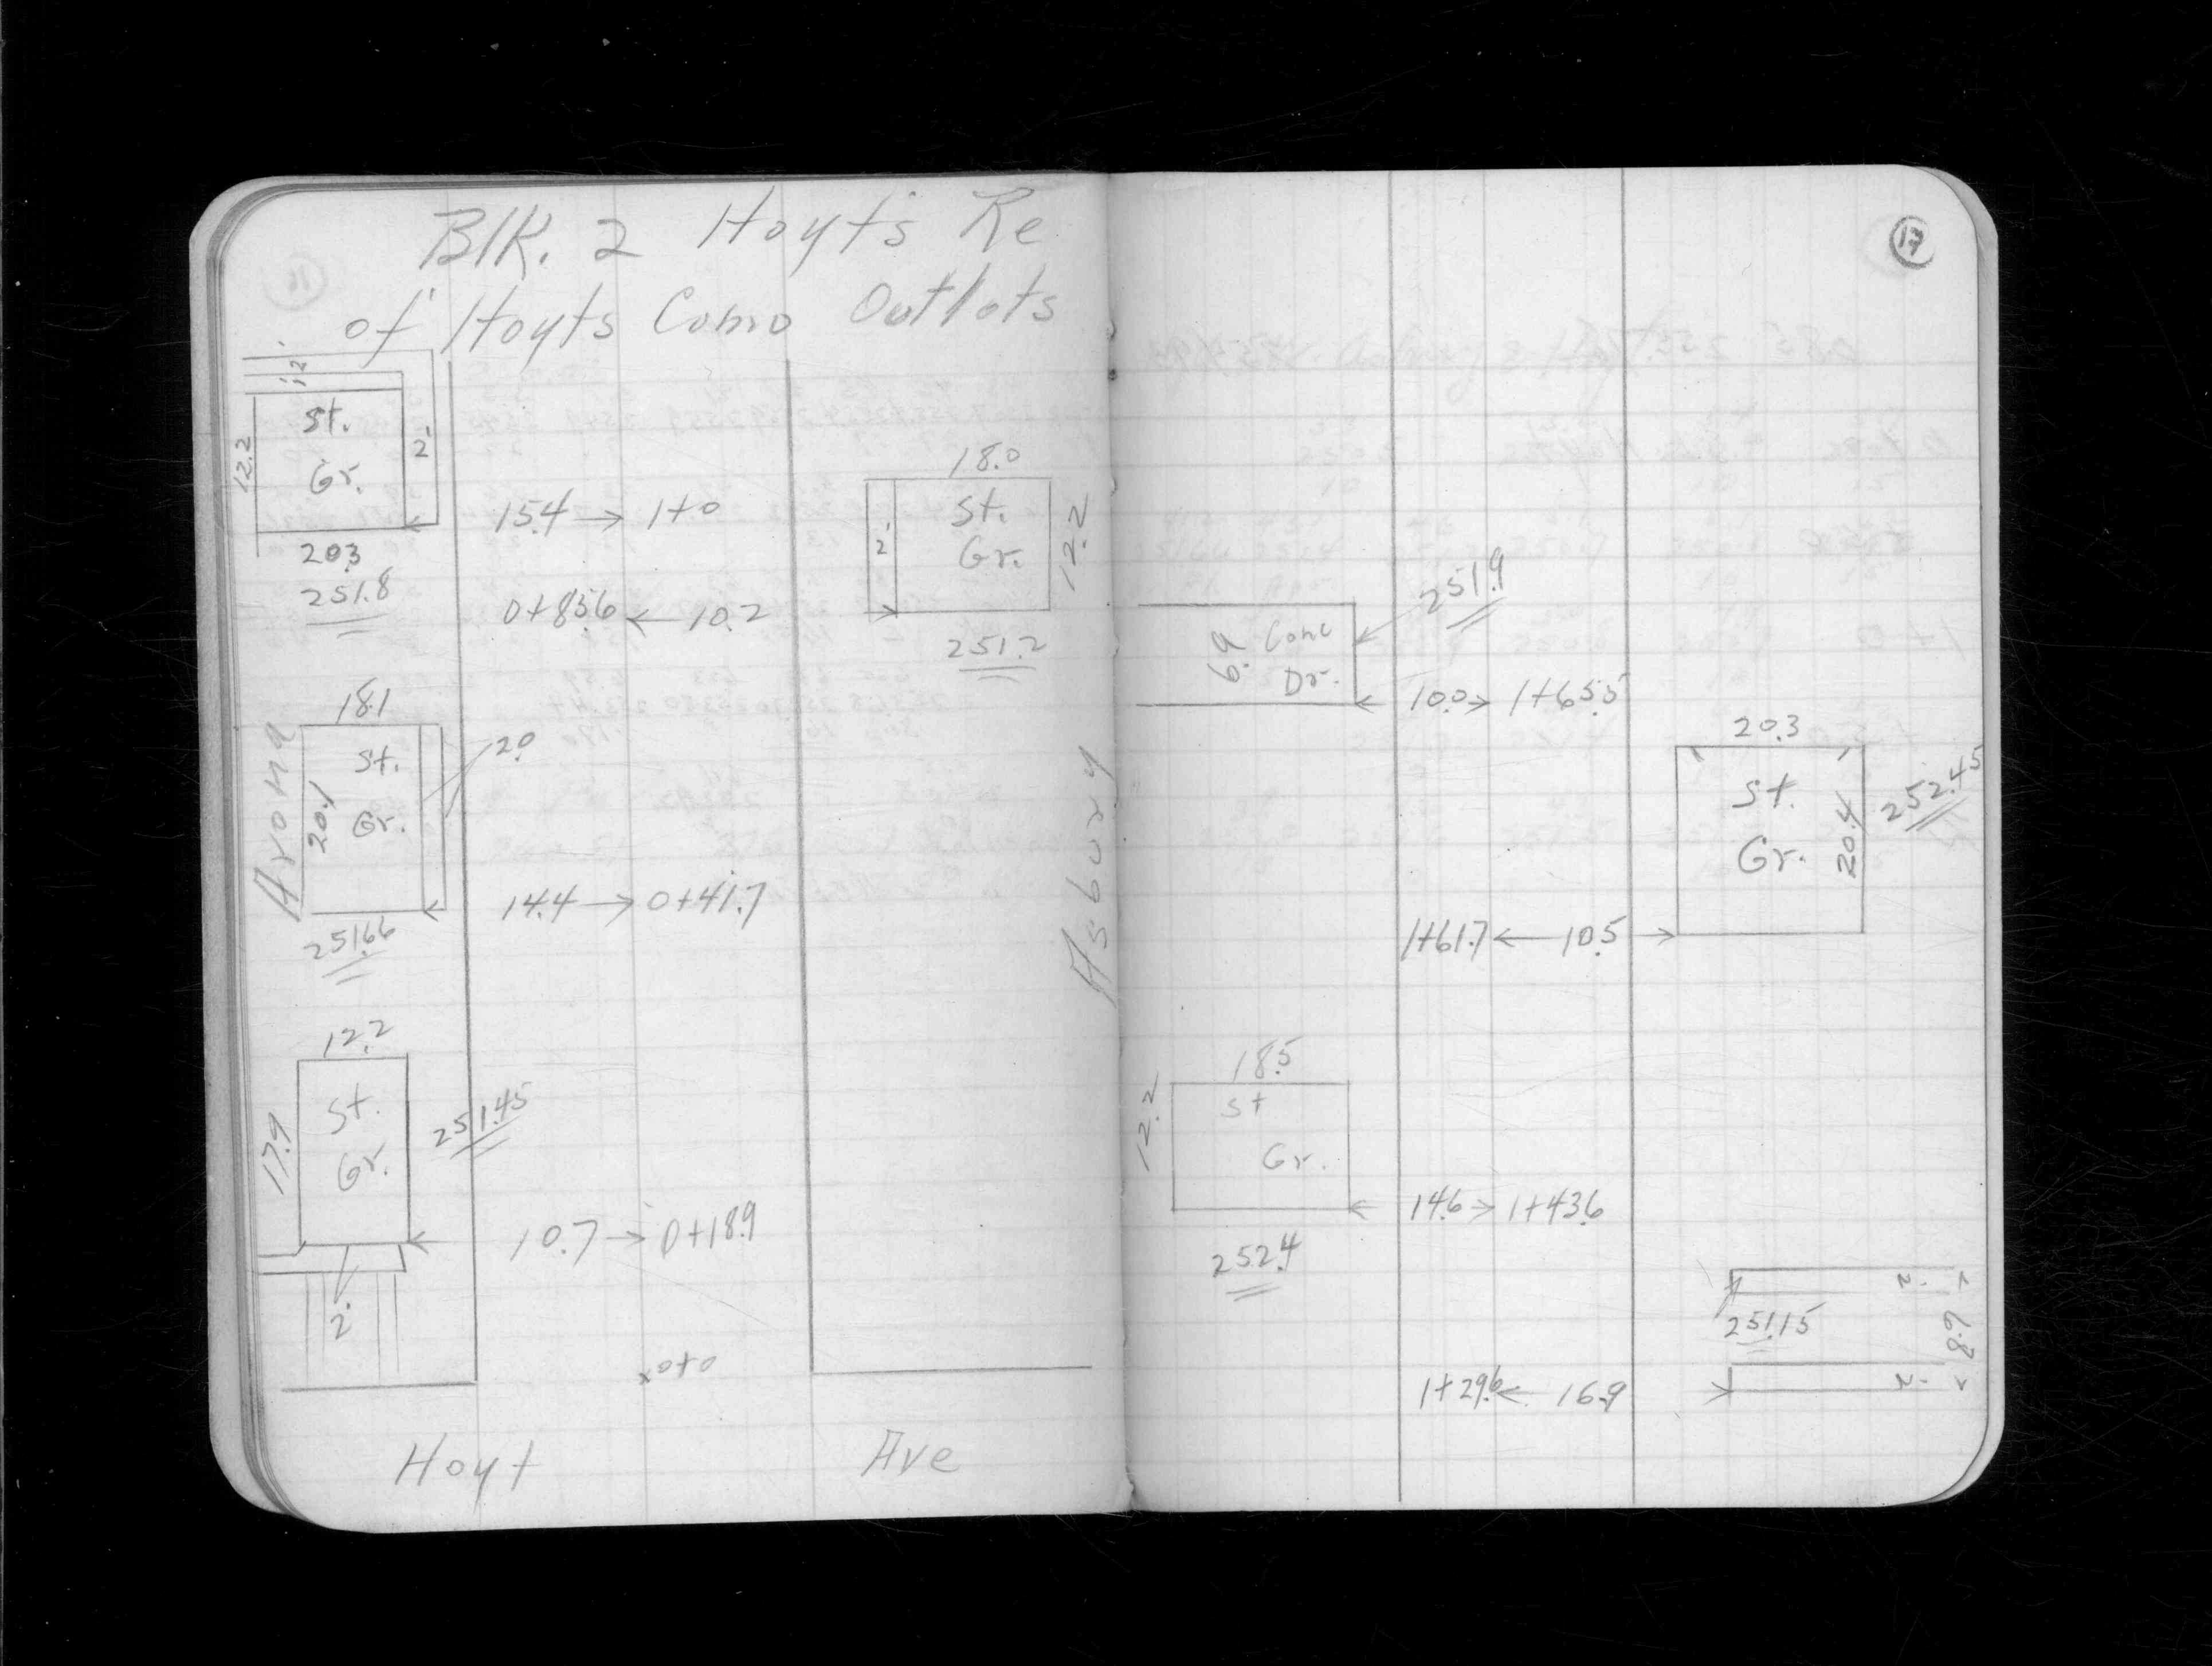 Blk. 2 Hoyt's Re
of Hoyts Como Outlots
12'
St.
Gr.
12.2
2'
20.3
251.8
15.4 → 1+0
18.0
St.
Gr.
2'
12.2
0+85.6 ← 10.2
251.2
18.1
St.
Gr.
20.1
2.0
Arona
14.4 → 0+41.7
251.66
Asbury
12.2
St.
Gr.
17.9
251.45
10.7 → 0+18.9
2'
x 0+0
Hoyt Ave
17
251.9
6.9 Conc
Dr.
10.0 → 1+65.5
20.3
St.
Gr.
20.4
252.45
1+61.7 ← 10.5
18.5
12.2
St
Gr.
14.6 → 1+43.6
252.4
2'
251.15
8.9
2'
1+29.6 ← 16.9